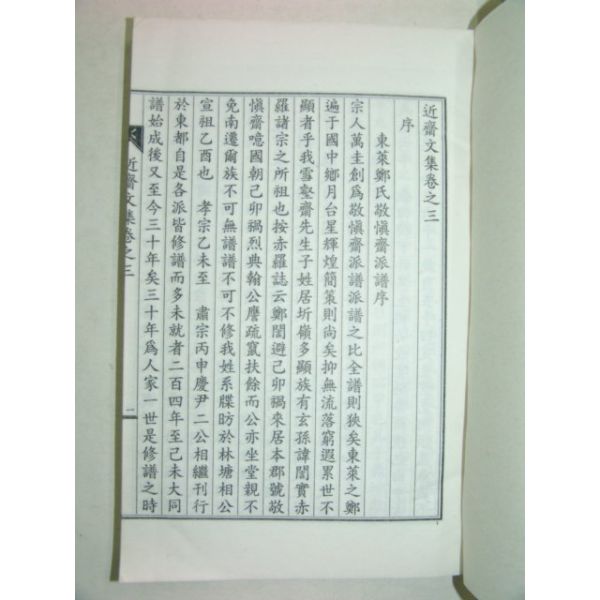 近齋文集卷之三
序
東萊鄭氏敬愼齋派譜派譜序
宗人萬圭創爲敬愼齋派譜派譜之比全譜則狹矣東萊之鄭
遍于國中鄕月台星輝煌簡策則尚矣抑無流落窮遐累世不
顯者乎我雪壑齋先生子姓居圻嶺多顯族有玄孫諱誾實赤
羅諸宗之所祖也按赤羅誌云鄭誾避己卯禍來居本郡號敬
愼齋噫國朝己卯禍烈典翰公譍疏竄扶餘而公亦坐堂親不
免南遷爾族不可無譜譜不可不修我姓系牒昉於林塘相公
宣祖乙酉也　孝宗乙未至　肅宗丙申慶尹二公相繼刊行
於東都自是各派皆修譜而多未就者二百四年至己未大同
譜始成後又至今三十年矣三十年爲人家一世是修譜之時
近齋文集卷之三
一